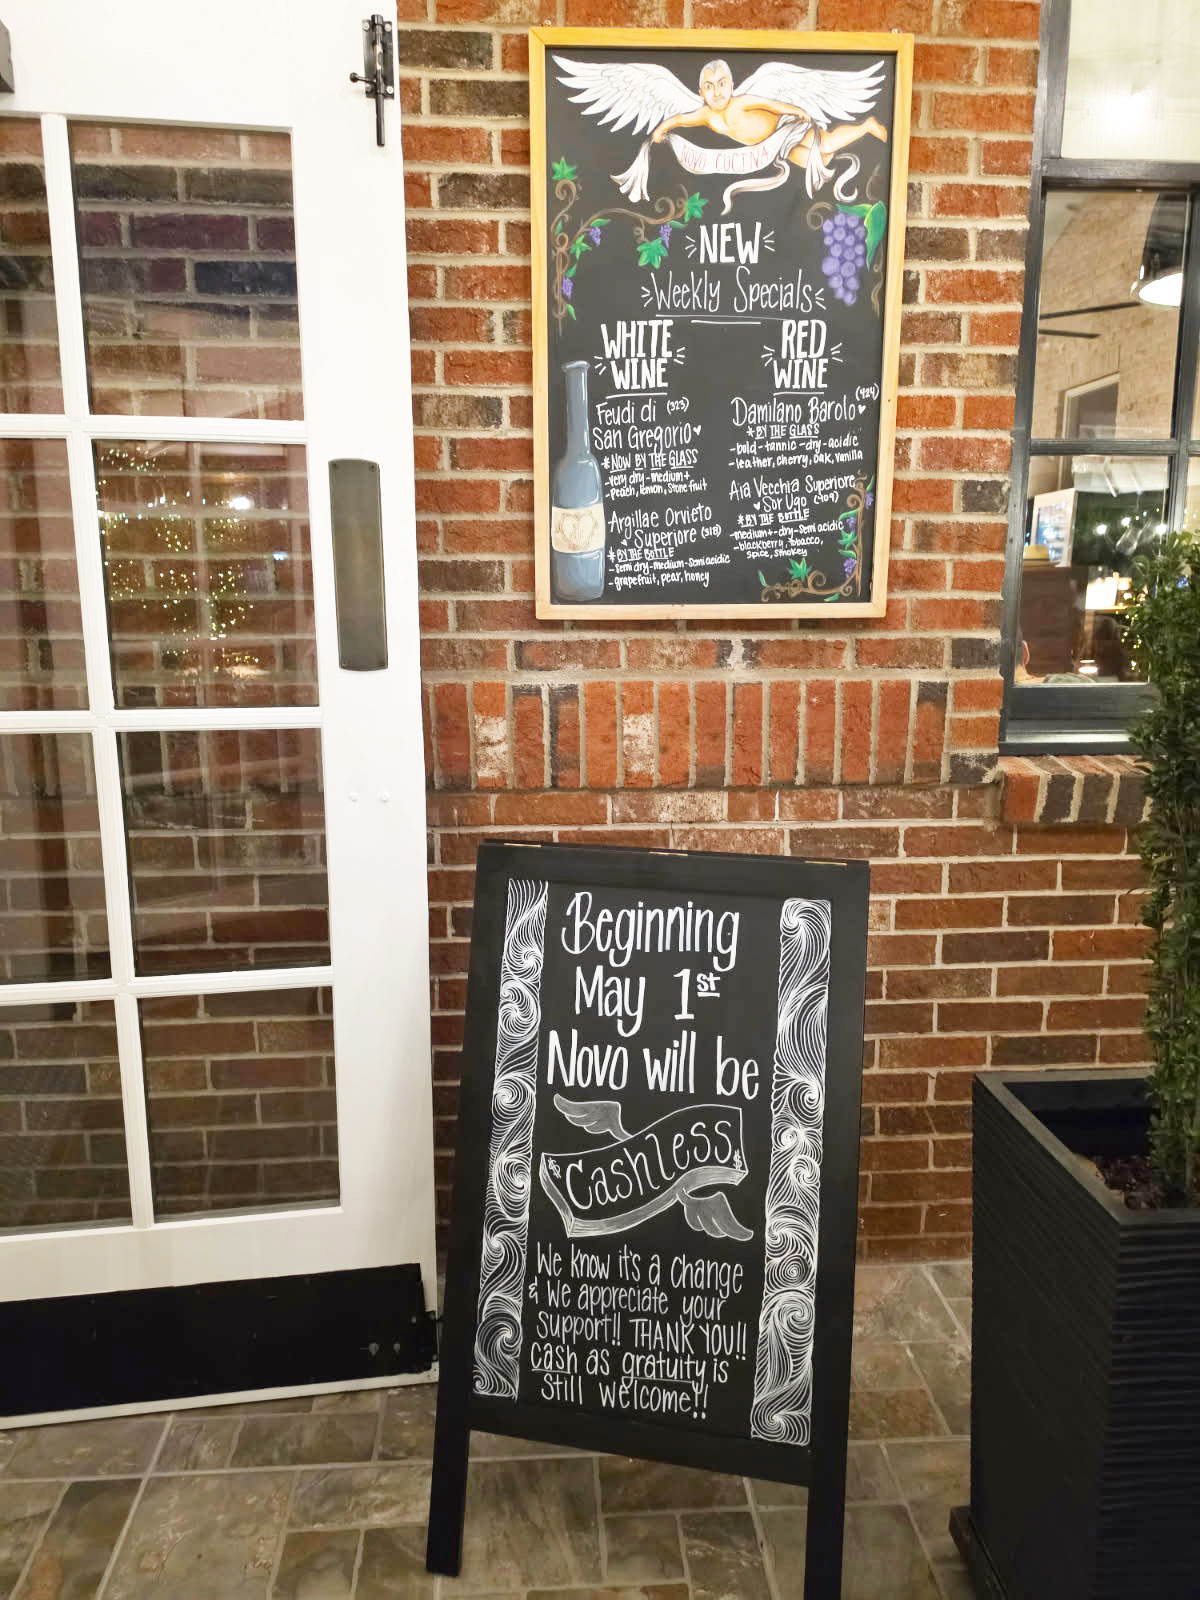 NOVO CUCINA
NEW
Weekly Specials
WHITE
WINE
Feudi di (323)
San Gregorio
*NOW BY THE GLASS
-very dry-medium+
-peach, lemon, Stone fruit
Argillae Orvieto
Superiore (318)
*BY THE BOTTLE
-semi dry-medium-semi acidic
-grapefruit, pear, honey
RED
WINE
(424)
Damilano Barolo
*BY THE GLASS
-bold-tannic-dry-acidic
-leather, cherry, oak, vanilla
Aia Vecchia Superiore
Sor Ugo (409)
*BY THE BOTTLE
-medium+-dry-semi acidic
-blackberry, tobacco,
spice, smokey
Beginning
May 1st
Novo will be
$ Cashless $
We know it's a change
& We appreciate your
support!! THANK YOU!!
cash as gratuity is
still welcome!!